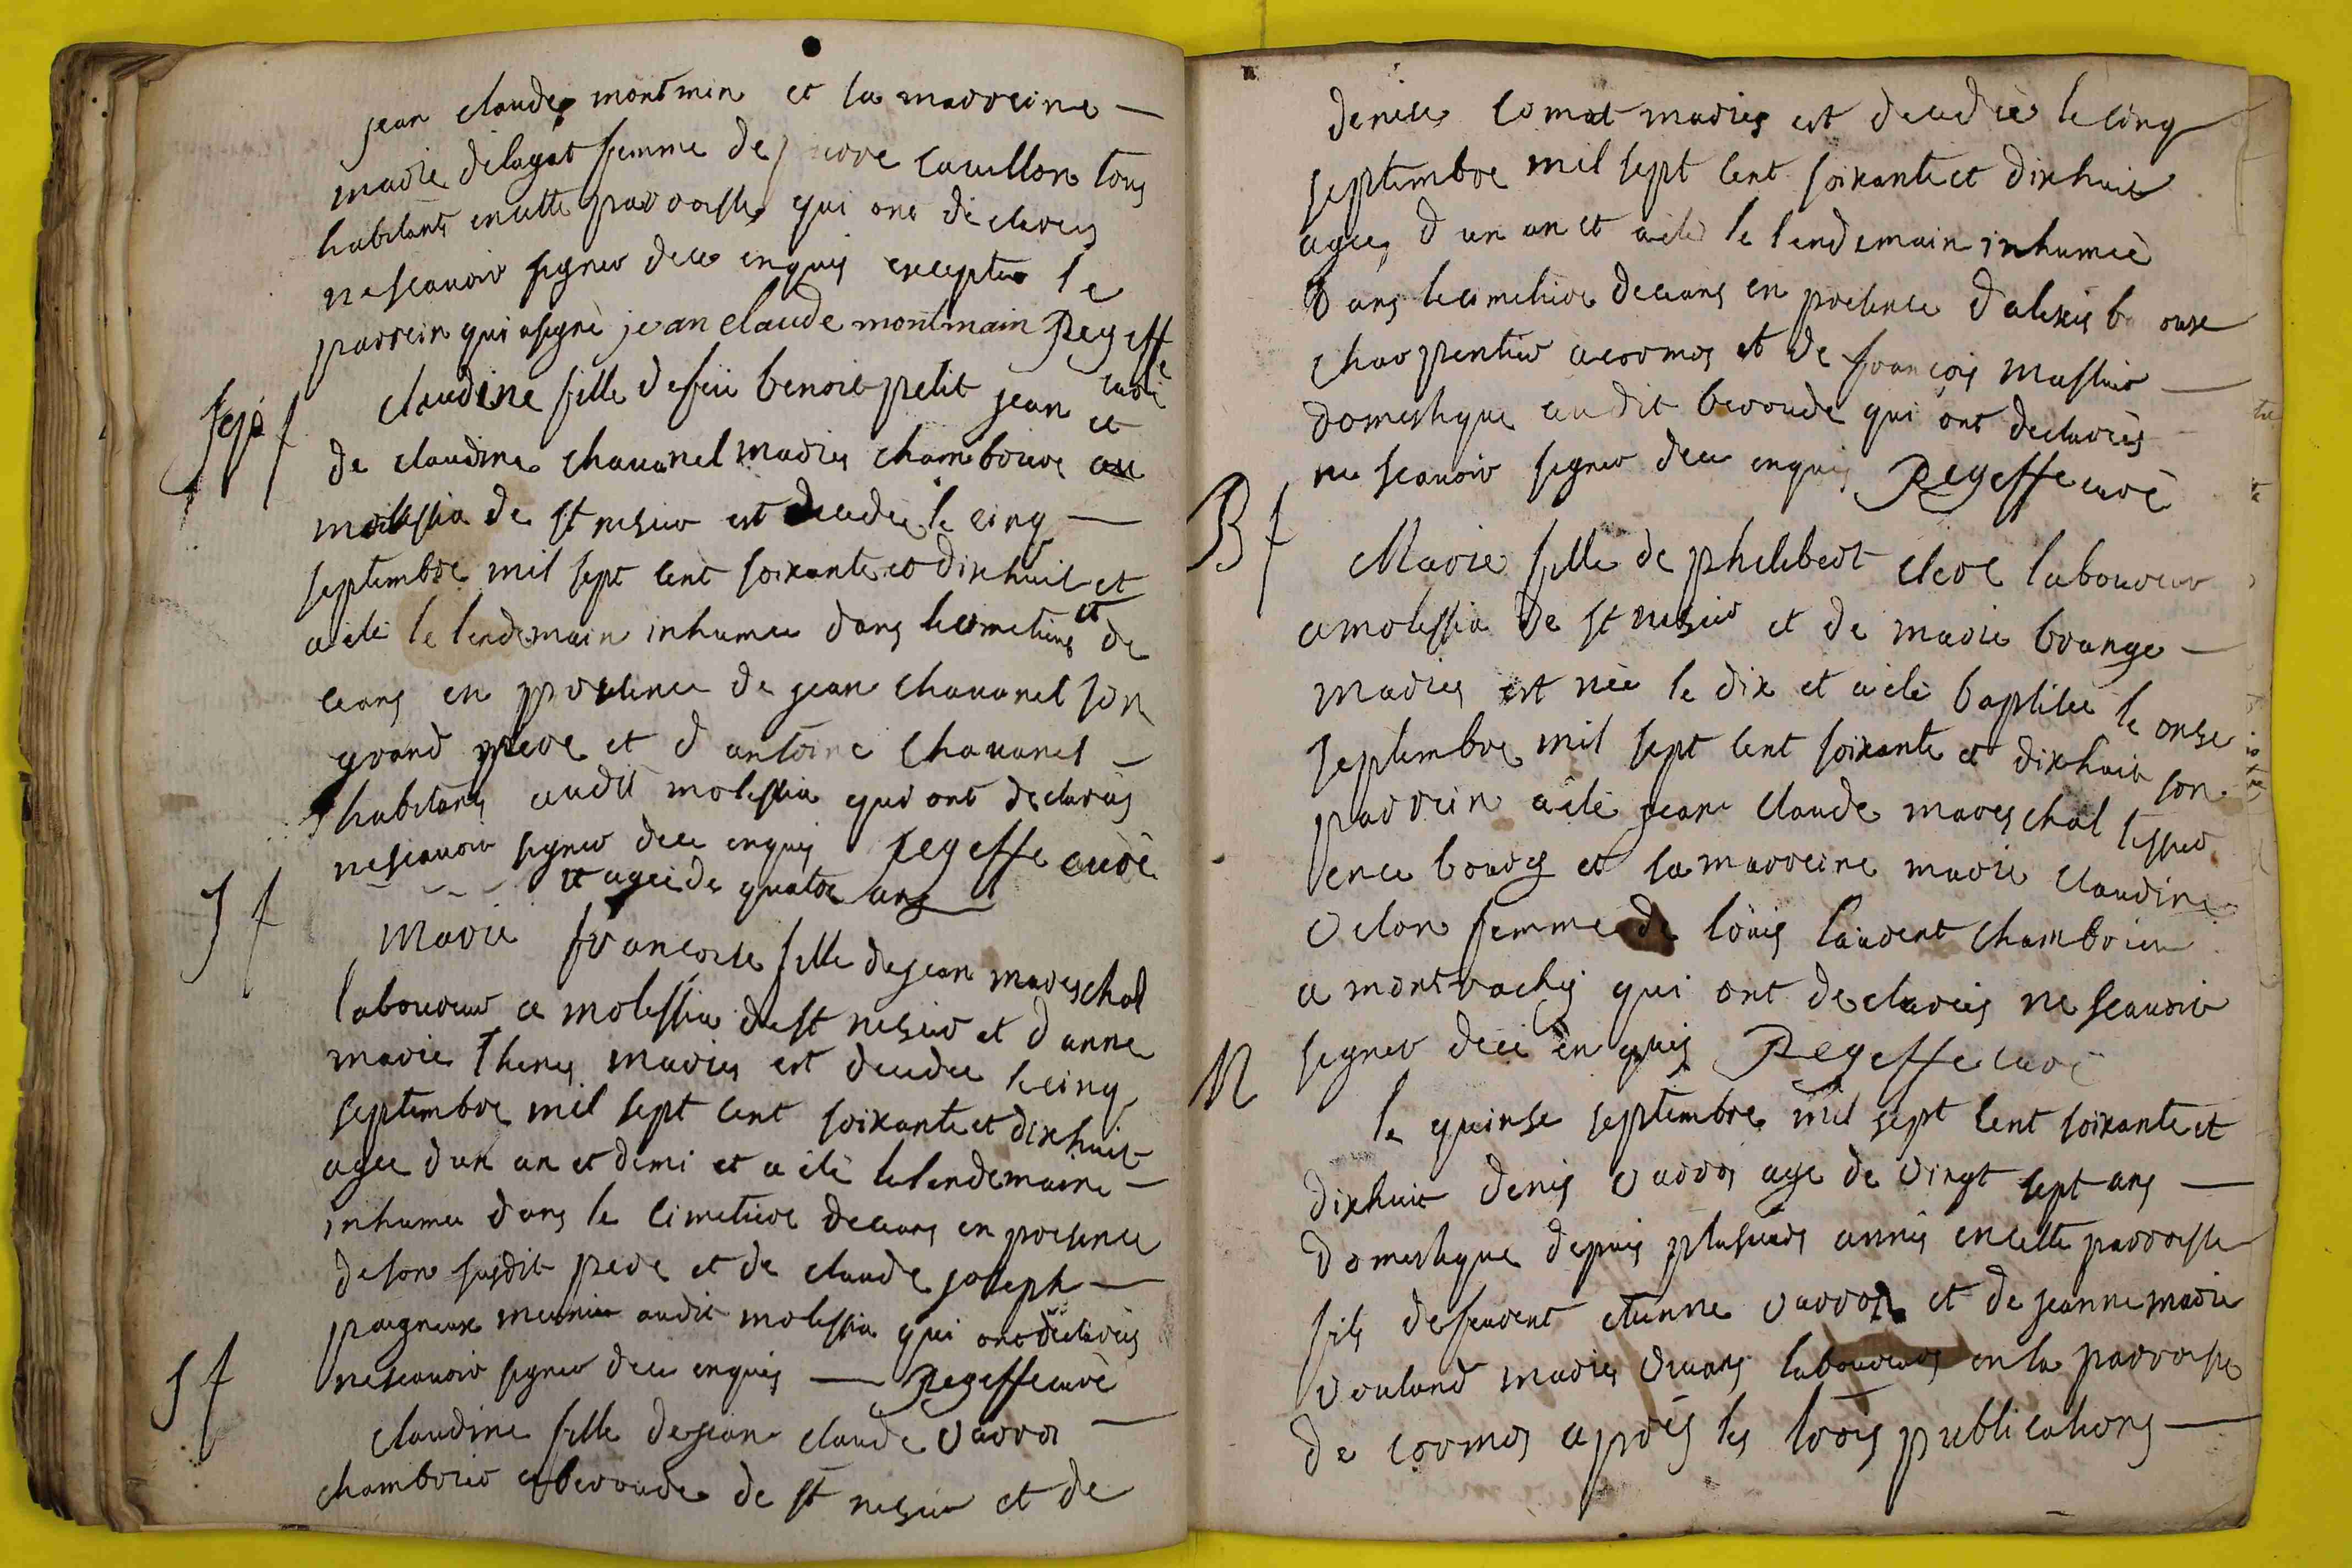 jean claude montmin et la marreine —
marie delagat femme de pierre carullon tous
habitans en cette parroisse qui ont declarez
ne scavoir signer de ce enquis excepter le
parrein qui a signè jean claude montmain Regeffe
curè
Sep f
claudine fille de feu benoit petit jean et
de claudine chavanel mariés chambrier au
molissia de st nesier est decedee le cinq —
septembre mil sept cent soixante et dixhuit et
a etè le lendemain inhumee dans le cimetiere et de
ceans en presence de jean chavanel son
grand pere et d antoine chavanel —
habitans audit molissia qui ont declarès
ne scavoir signer de ce enquis Regeffe curè
et agee de quatre ans
S f
Marie francoise fille de jean mareschal
laboureur a molissia de st nesier et d anne
marie Thenes mariés est decedee le cinq
septembre mil sept cent soixante et dixhuit
agee d un an et demi et a etè le lendemain —
inhumee dans le cimetiere de ceans en presence
de son susdit pere et de claude joseph —
pagneux meunier audit molissia qui ont declarès
ne scavoir signer de ce enquis — Regeffe curè
S f
claudine fille de jean claude varro —
chambrier a beroude de st nesier et de
denise comat mariés est decedeè le cinq
septembre mil sept cent soixante et dixhuit
agee d un an et a etè le lendemain inhumeè
dans le cimetiere de ceans en presence d alexis
charpentier a cormos et de françois maslier —
domestique audit beroude qui ont declarès
ne scavoir signer de ce enquis Regeffe curè
B f
Marie fille de philibert clere laboureur
a molissia de st nesier et de marie brange —
mariés est neè le dix et a etè baptisee le onse
septembre mil sept cent soixante et dixhuit son
parrein a etè jean claude mareschal tissier
en ce bourg et la marreine marie claudine
velon femme de louis laurent chambrier
a montrachy qui ont declarés ne scavoir
signer de ce en quis Regeffe curè
M
le quinse septembre mil sept cent soixante et
dixhuit denis varro age de vingt sept ans —
domestique depuis plusieurs annes en cette parroisse
fils defeurent etienne varro et de jeanne marie
vouland mariés vivans laboureurs en la parroisse
de cormos aprés les trois publications —